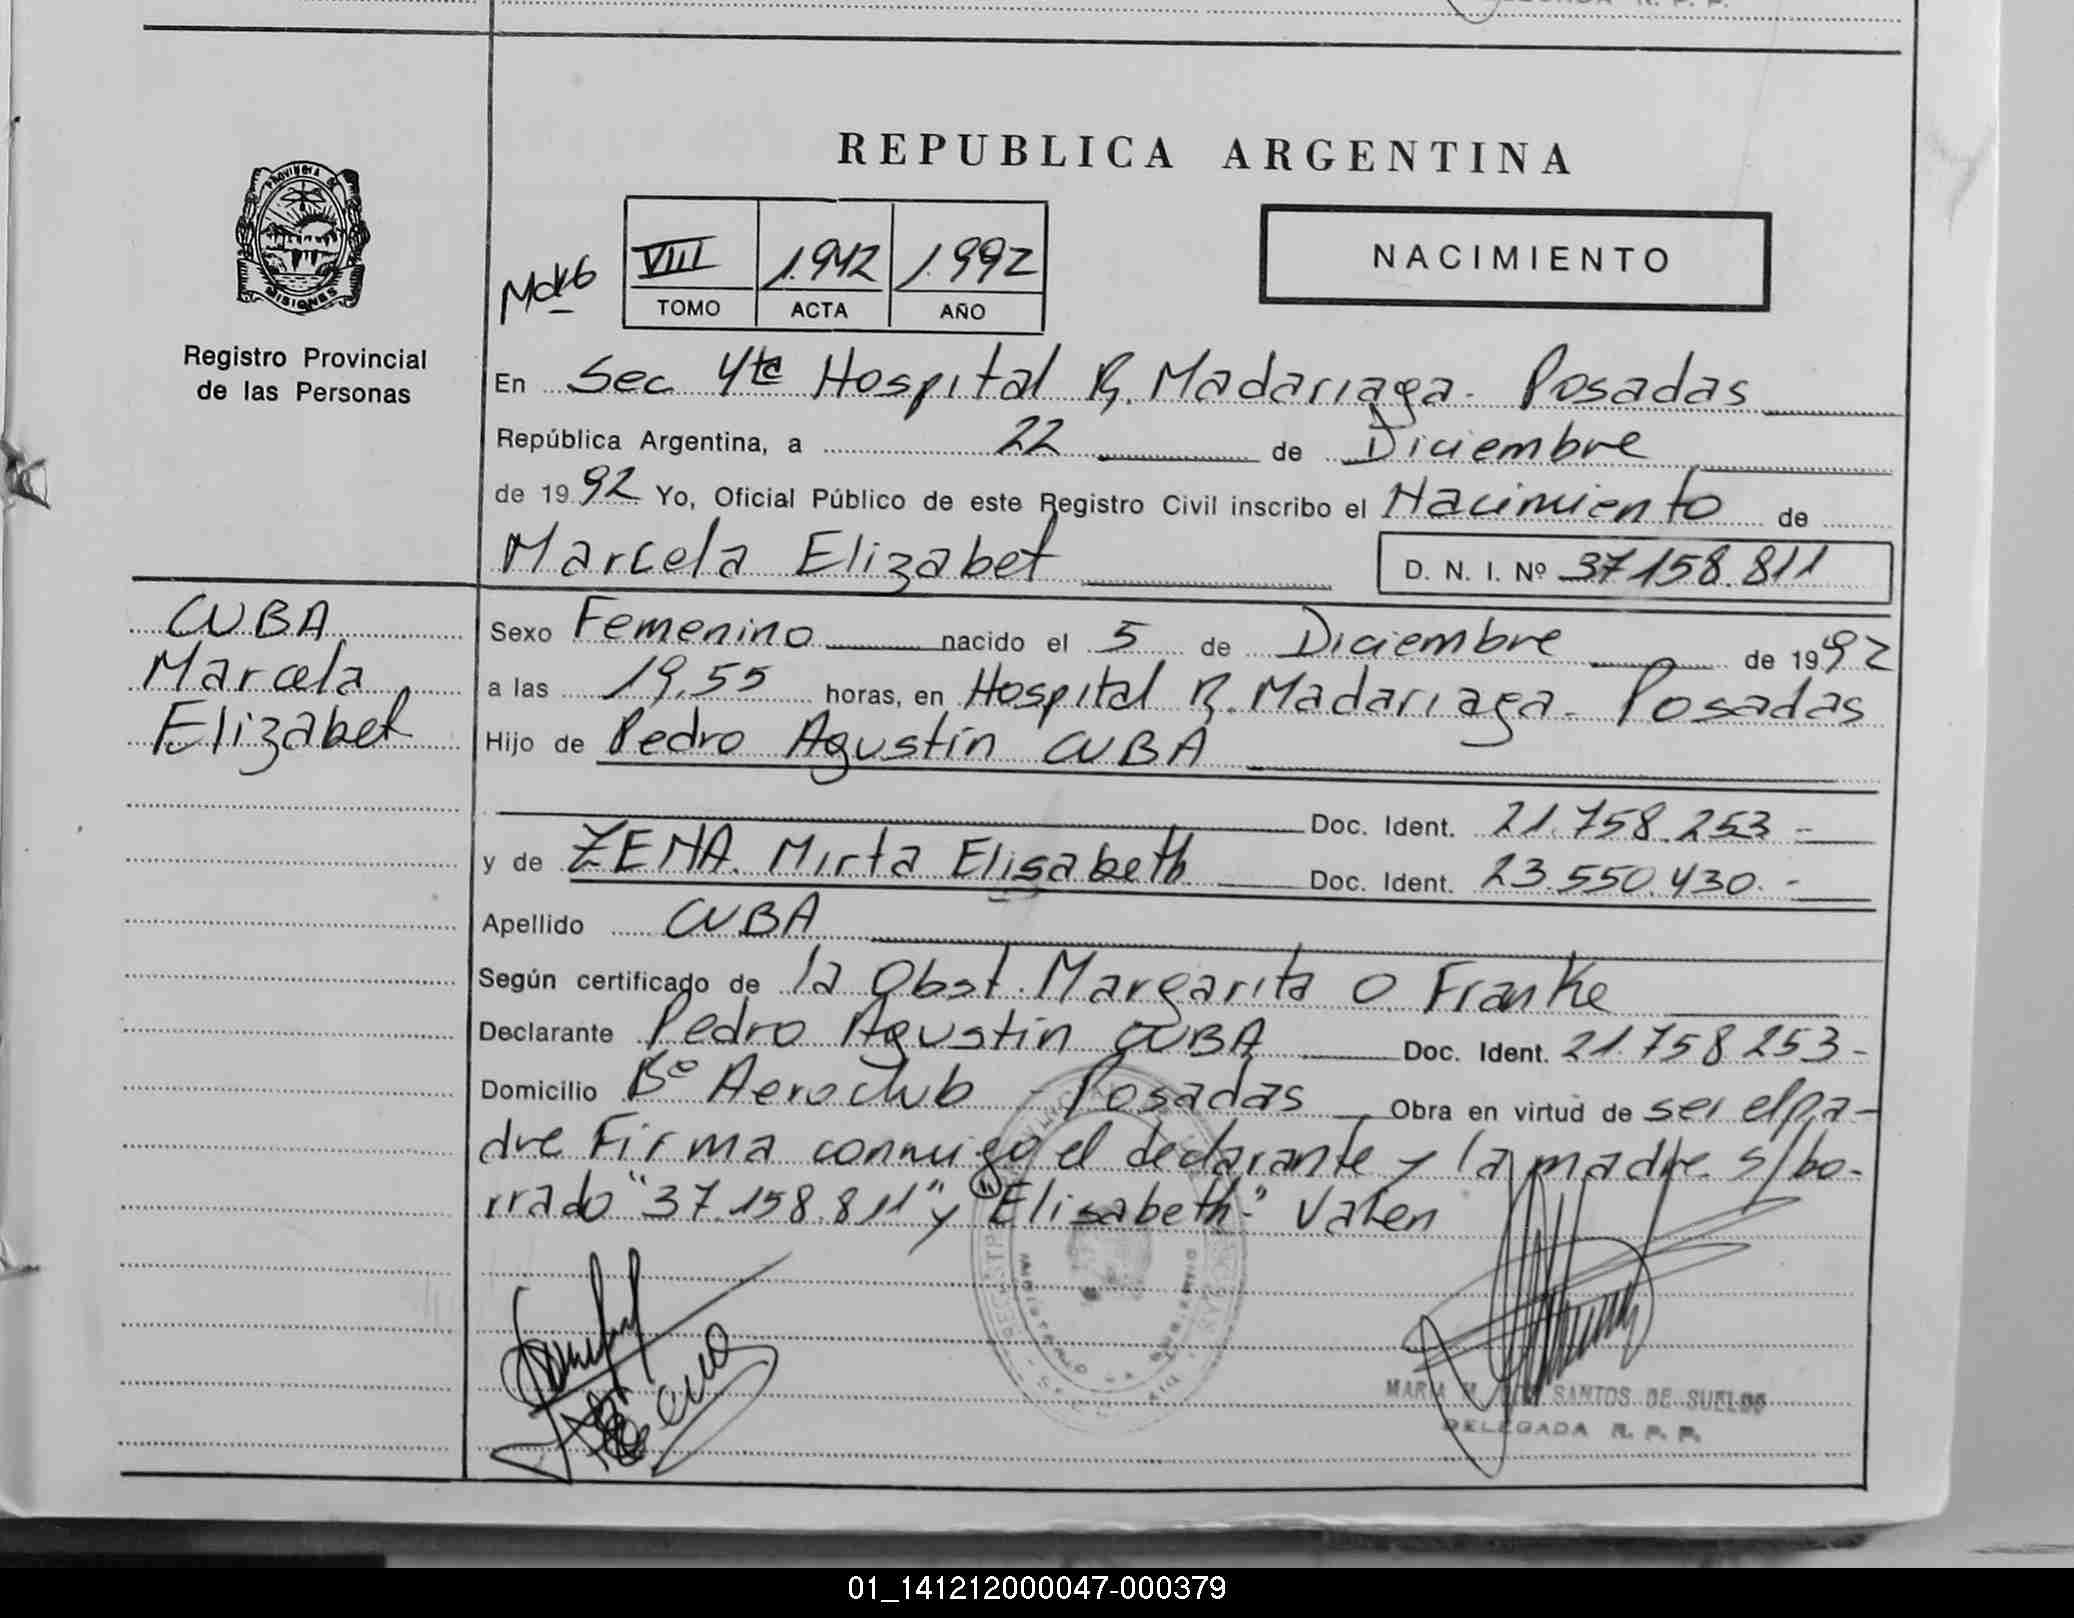 REPUBLICA ARGENTINA
PROVINCIA DE
MISIONES
Registro Provincial
de las Personas
VIII 1.942 1.992
TOMO ACTA AÑO
NACIMIENTO
En Sec 4ta Hospital R. Madariaga - Posadas
República Argentina, a 22 de Diciembre
de 1992 Yo, Oficial Público de este Registro Civil inscribo el Nacimiento de
Marcela Elizabet D. N. I. Nº 37.158.811
CUBA
Marcela
Elizabet
Sexo Femenino nacido el 5 de Diciembre de 1992
a las 19,55 horas, en Hospital R. Madariaga - Posadas
Hijo de Pedro Agustín CUBA
Doc. Ident. 21.758.253 -
y de ZENA. Mirta Elisabeth Doc. Ident. 23.550.430. -
Apellido CUBA
Según certificado de la Obst. Margarita O Franke
Declarante Pedro Agustin CUBA Doc. Ident. 21.758 253 -
Domicilio Bº Aeroclub - Posadas Obra en virtud de ser el pa-
dre Firma conmigo el declarante y la madre s/bo-
rrado "37.158.811" y "Elisabeth" Valen
MARIA M. DOS SANTOS DE SUELDO
DELEGADA R. P. P.
01_141212000047-000379